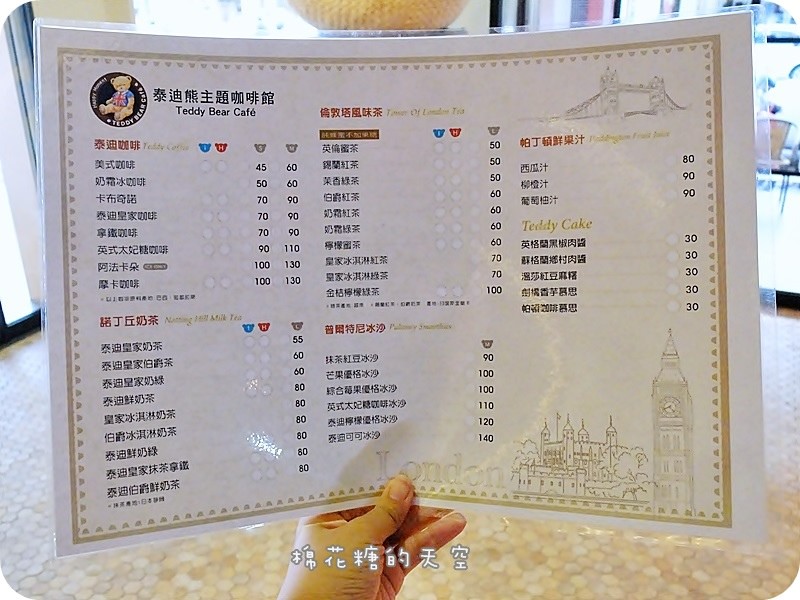 泰迪熊主題咖啡館
Teddy Bear Café
TEDDY BEAR CAFE
泰迪咖啡 Teddy Coffee
I H S H
美式咖啡 45 60
奶霜冰咖啡 50 60
卡布奇諾 70 90
泰迪皇家咖啡 70 90
拿鐵咖啡 70 90
英式太妃糖咖啡 90 110
阿法卡朵 100 130
摩卡咖啡 100 130
諾丁丘奶茶 Notting Hill Milk Tea
I H L
泰迪皇家奶茶 55
泰迪皇家伯爵茶 60
泰迪皇家奶綠 60
泰迪鮮奶茶 80
皇家冰淇淋奶茶 80
伯爵冰淇淋奶茶 80
泰迪鮮奶綠 80
泰迪皇家抹茶拿鐵 80
泰迪伯爵鮮奶茶 80
*抹茶產地:日本靜岡
倫敦塔風味茶 Tower Of London Tea
純蜂蜜不加果糖
I H L
英倫蜜茶 50
錫蘭紅茶 50
茉香綠茶 50
伯爵紅茶 50
奶霜紅茶 60
奶霜綠茶 60
檸檬蜜茶 60
皇家冰淇淋紅茶 70
皇家冰淇淋綠茶 70
金桔檸檬綠茶 100
普爾特尼冰沙 Pulteney Smoothies
抹茶紅豆冰沙 90
芒果優格冰沙 100
綜合莓果優格冰沙 100
英式太妃糖咖啡冰沙 110
泰迪檸檬優格冰沙 120
泰迪可可冰沙 140
帕丁頓鮮果汁 Paddington Fruit Juice
西瓜汁 80
柳橙汁 90
葡萄柚汁 90
Teddy Cake
英格蘭黑椒肉醬 30
蘇格蘭鄉村肉醬 30
溫莎紅豆麻糬 30
劍橋香芋慕思 30
帕頓咖啡慕思 30
London
棉花糖的天空